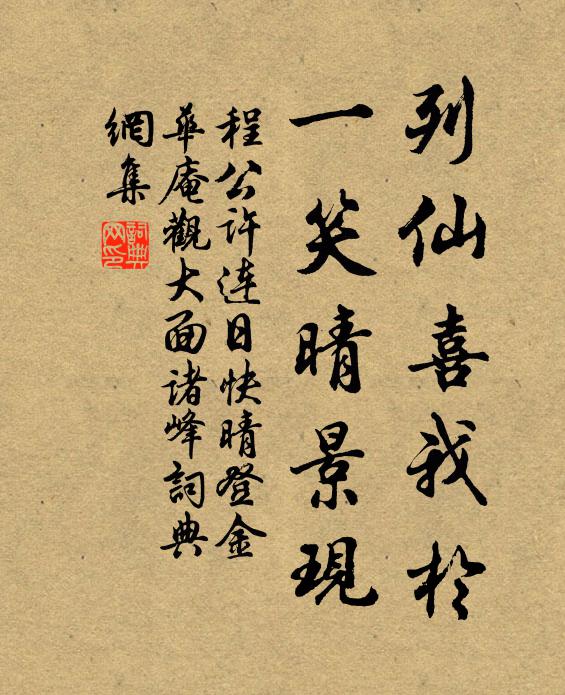 列仙喜我於
一笑晴景現
程公許連日快晴登金
華庵觀大面諸峰詞典
網集
詞典
网印